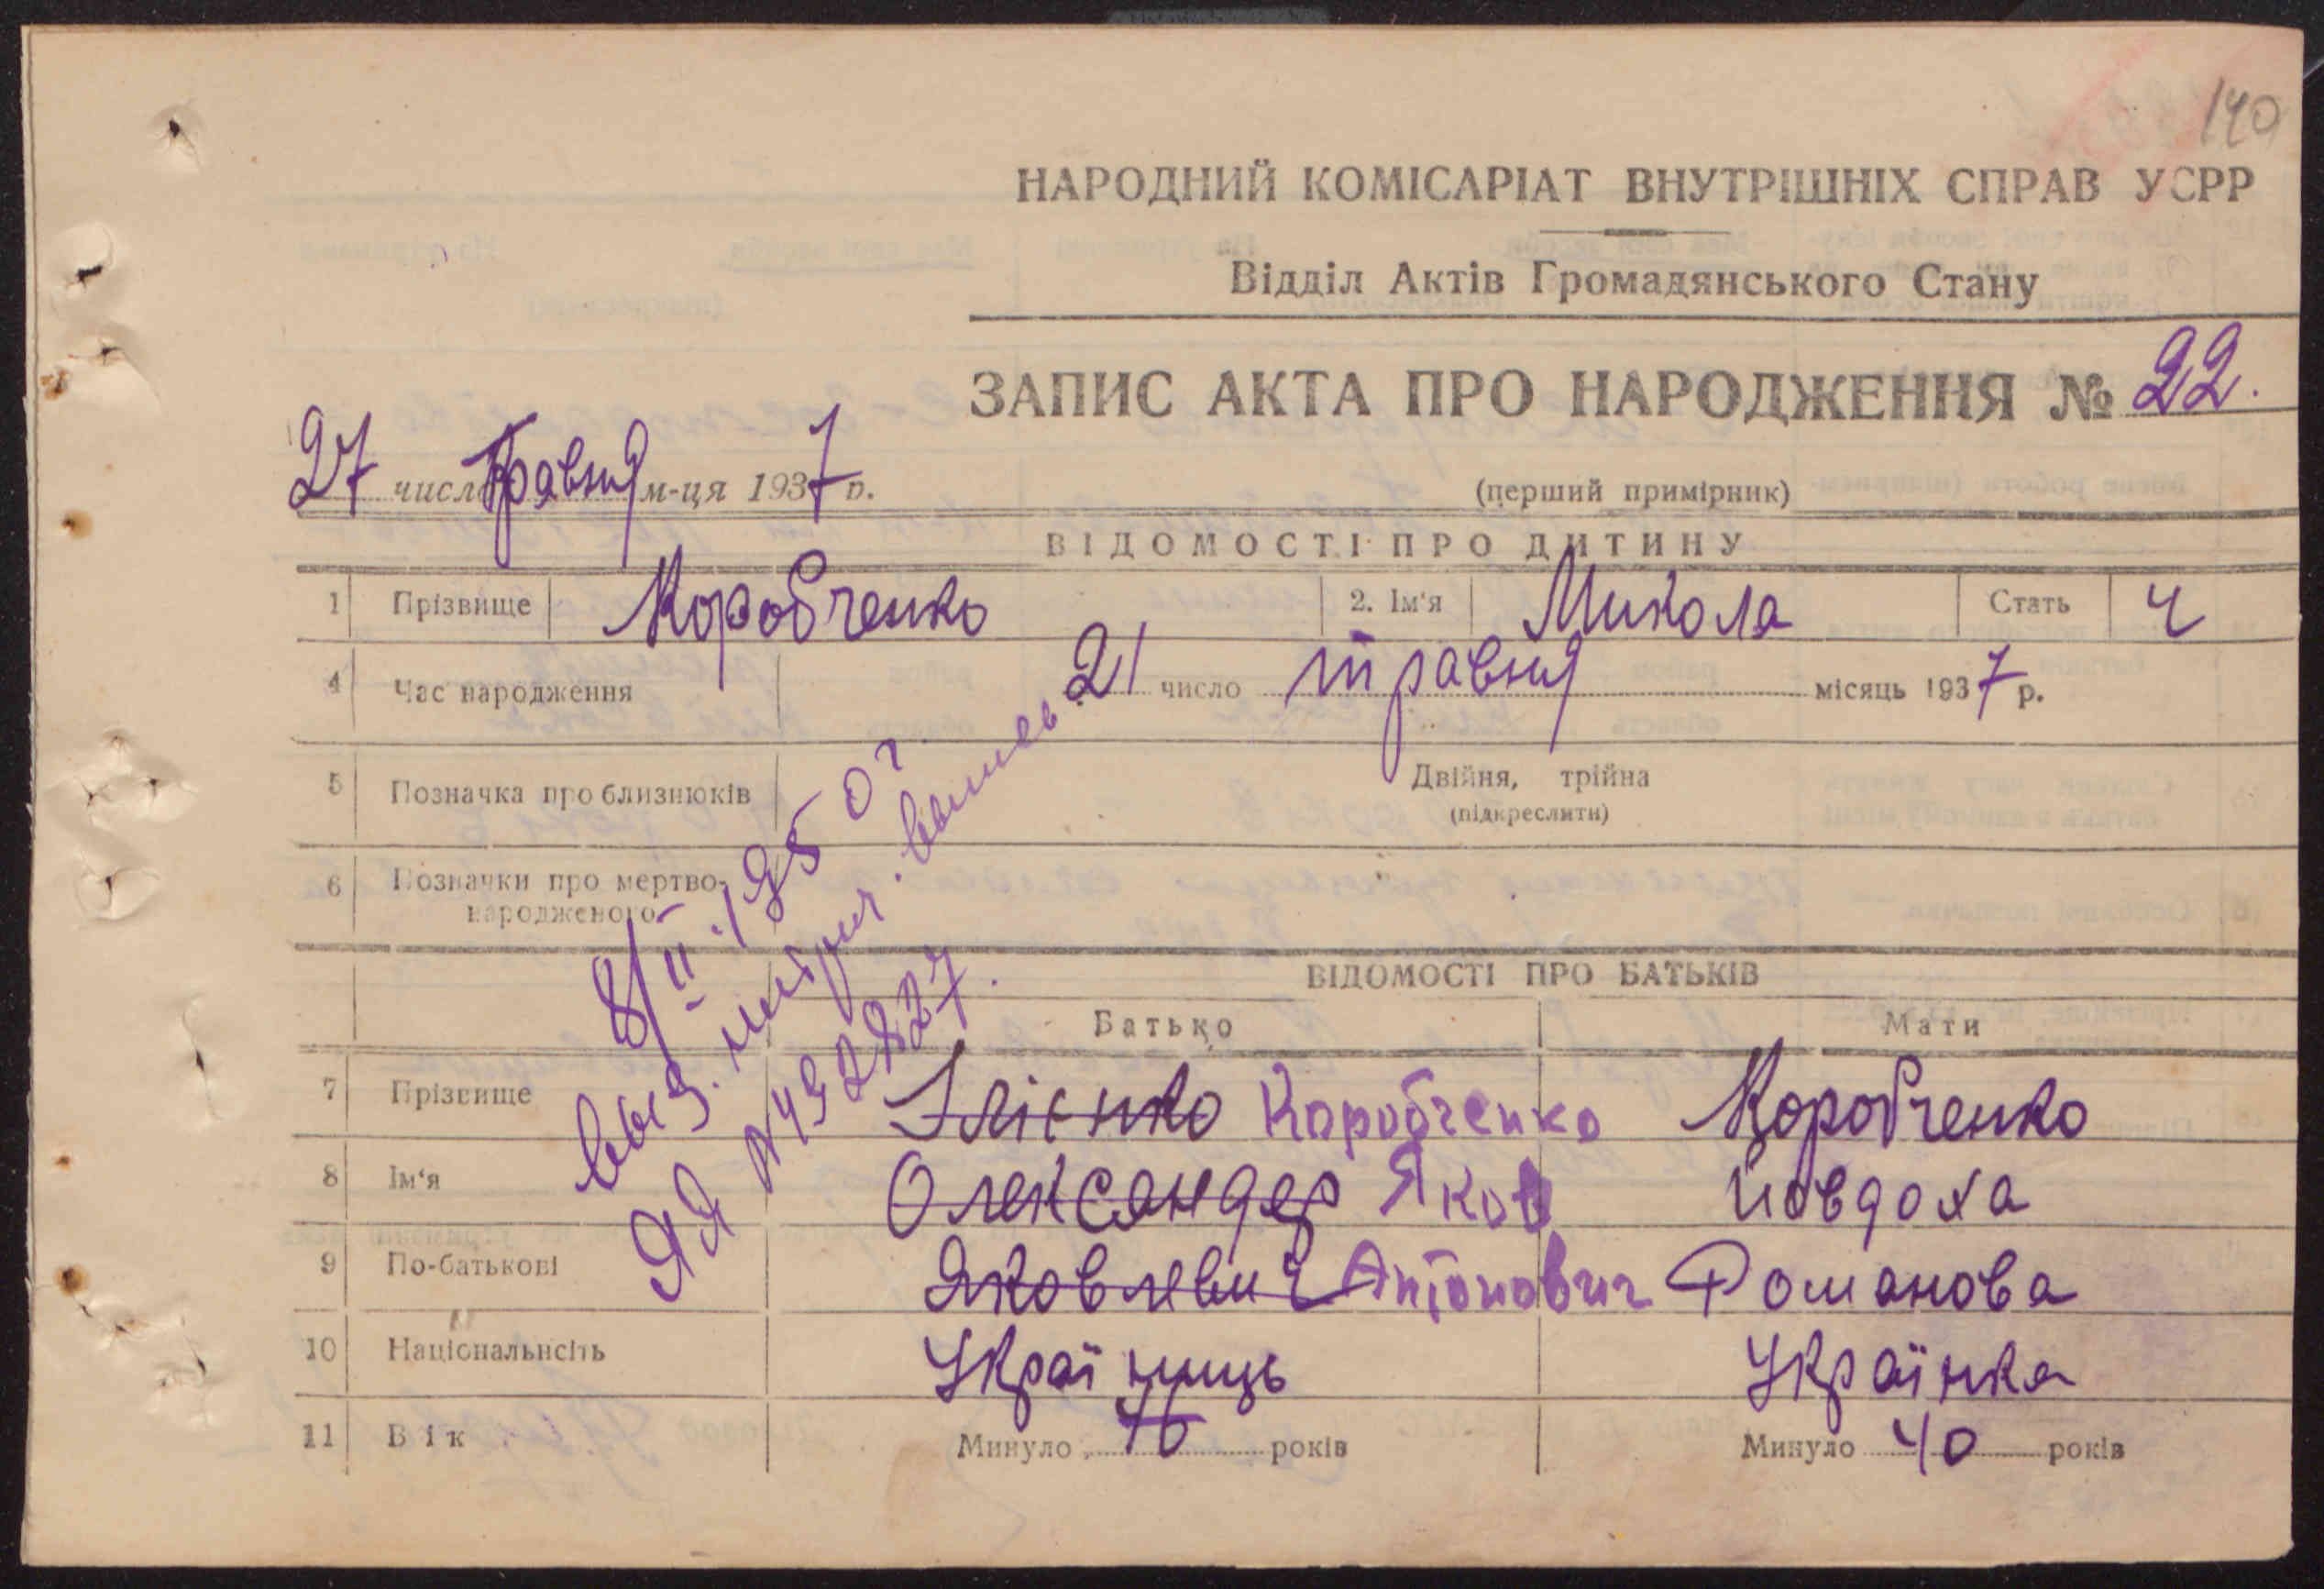 140
НАРОДНИЙ КОМІСАРІАТ ВНУТРІШНІХ СПРАВ УСРР
Відділ Актів Громадянського Стану
ЗАПИС АКТА ПРО НАРОДЖЕННЯ № 22.
27 число травня м-ця 1937 р.
(перший примірник)
ВІДОМОСТІ ПРО ДИТИНУ
1 Прізвище Коробченко 2. Ім'я Микола Стать ч
4 Час народження 21 число травня місяць 1937 р.
5 Позначка про близнюків Двійня, трійна
(підкреслити)
6 Позначки про мертво-
народженого
8/II 1950 г.
выд.
ЯЯ № 492827.
ВІДОМОСТІ ПРО БАТЬКІВ
Батько Мати
7 Прізвище Ілієнко Коробченко Коробченко
8 Ім'я Олександер Яков Йовдоха
9 По-батькові Яковлевич Антонович Романова
10 Національнсіть Україниць Українка
11 Вік Минуло років Минуло 40 років